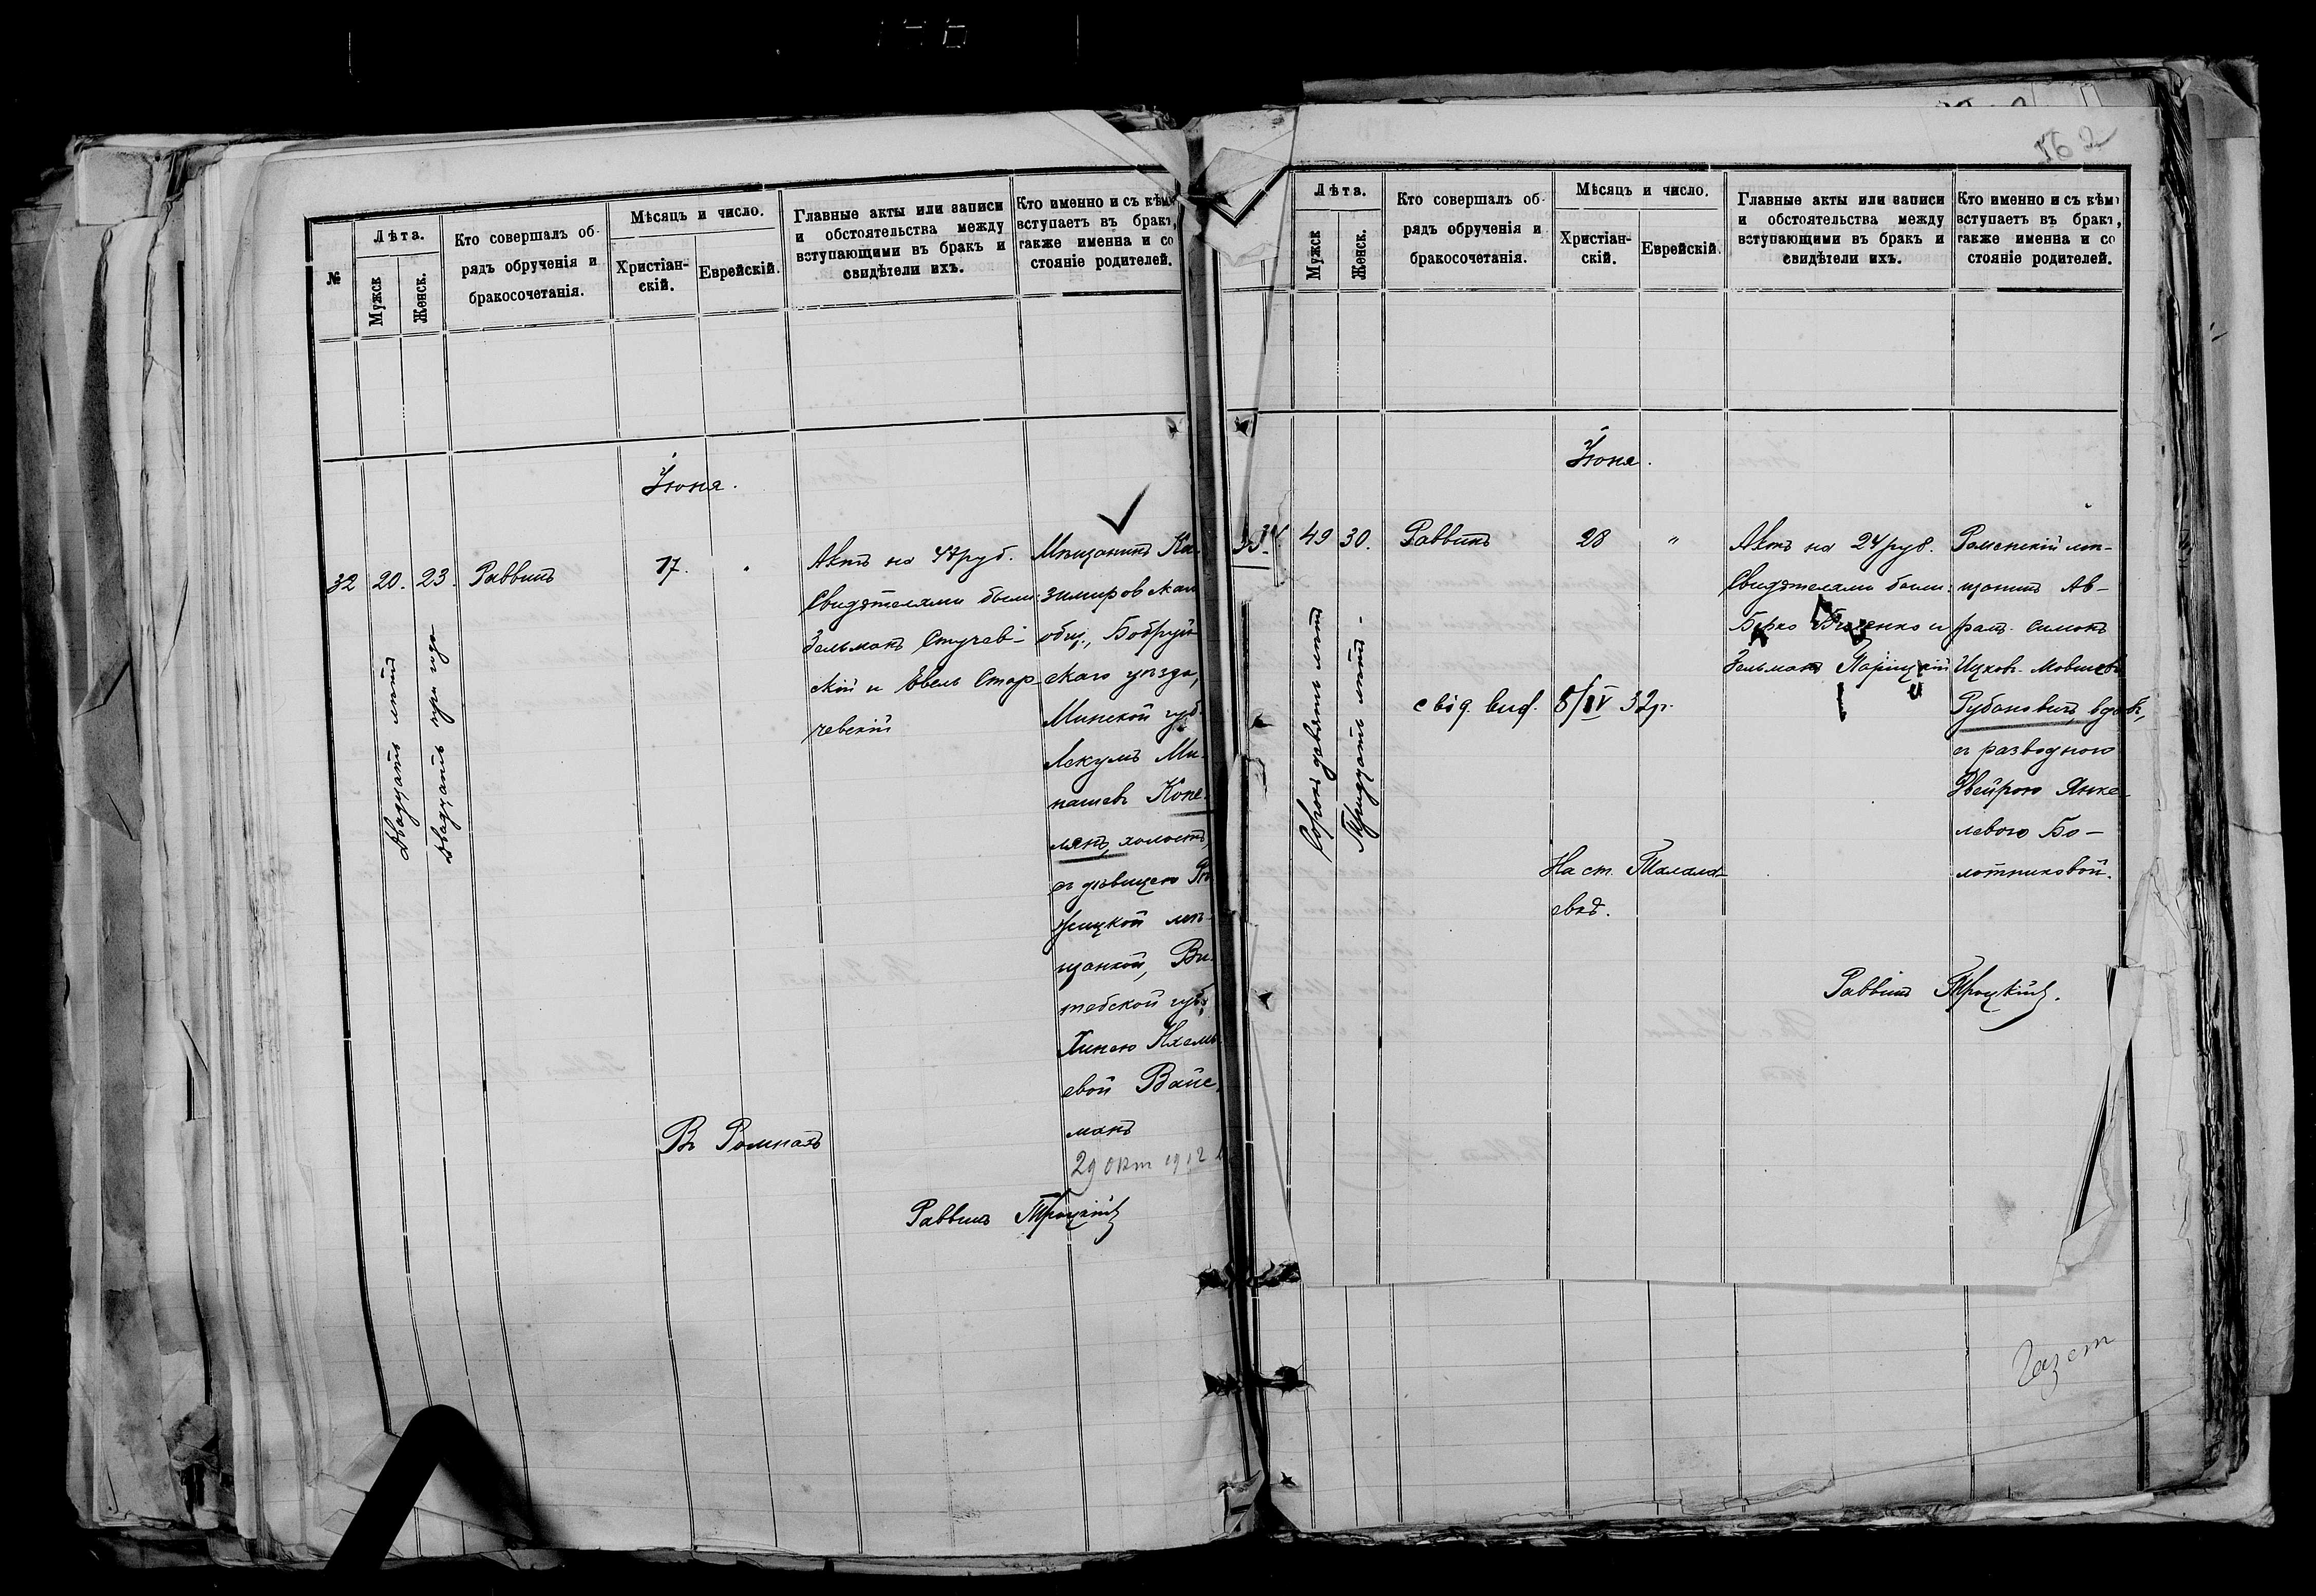 №
Лѣта.
Мужск
Женск.
Кто совершалъ об-
рядъ обрученія и
бракосочетанія.
Мѣсяцъ и число.
Христіан-
скій.
Еврейскій.
Главные акты или записи
и обстоятельства между
вступающими въ бракъ и
свидѣтели ихъ.
Кто именно и съ кѣмъ
вступаетъ въ бракъ,
также именна и со
стояніе родителей.
Іюня.
32
20.
23.
Двадцать лѣтъ
Двадцать три года
Раввинъ
17.
Актъ на 47 руб.
Свидѣтелями были:
Зельманъ Случев-
скій и Евель Стар-
чевскій
Мѣщанинъ Ка-
зимировскаго
общ., Бобруй-
скаго уѣзда,
Минской губ.
Лекумъ Ми-
нашевъ Копе-
лянъ, холостъ,
съ дѣвицею Рѣ-
жицкой мѣ-
щанкой, Ви-
тебской губ.
Хинею
евой Вайс-
манъ
29 окт 1912
Въ Ромнахъ
Раввинъ Троцкій
162
Лѣта.
Мужск
Женск.
Кто совершалъ об-
рядъ обрученія и
бракосочетанія.
Мѣсяцъ и число.
Христіан-
скій.
Еврейскій.
Главные акты или записи
и обстоятельства между
вступающими въ бракъ и
свидѣтели ихъ.
Кто именно и съ кѣмъ
вступаетъ въ бракъ,
также именна и со
стояніе родителей.
Іюня.
33.
49
30.
Сорокъ девять лѣтъ
Тридцать лѣтъ
Раввинъ
28
"
Актъ на 24 руб.
Свидѣтелями были:
Берко и
Зельманъ Парицкій
Роменскій мѣ-
щанинъ Ав-
рам. Симонъ
Ицков. Мовшевъ
Рубановичъ, вдовъ,
съ разводною
Двейрою Янке-
левою Бо-
лотниковой.
свід. вид. 8/IV 32р.
На ст. Талала-
евкѣ.
Раввинъ Троцкій.
Газет